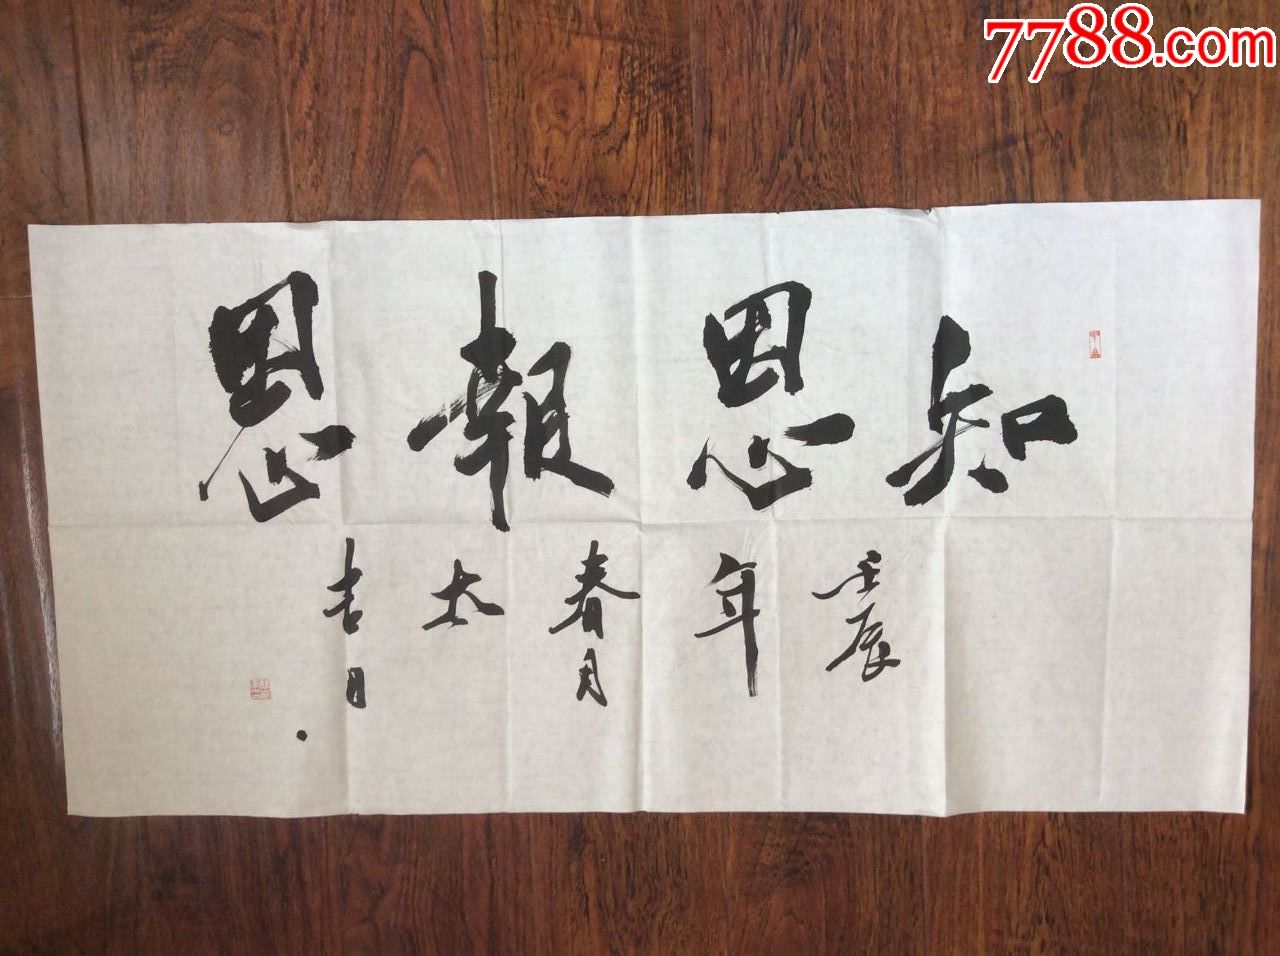 7788.com
知恩報恩
壬辰年春月太吉日